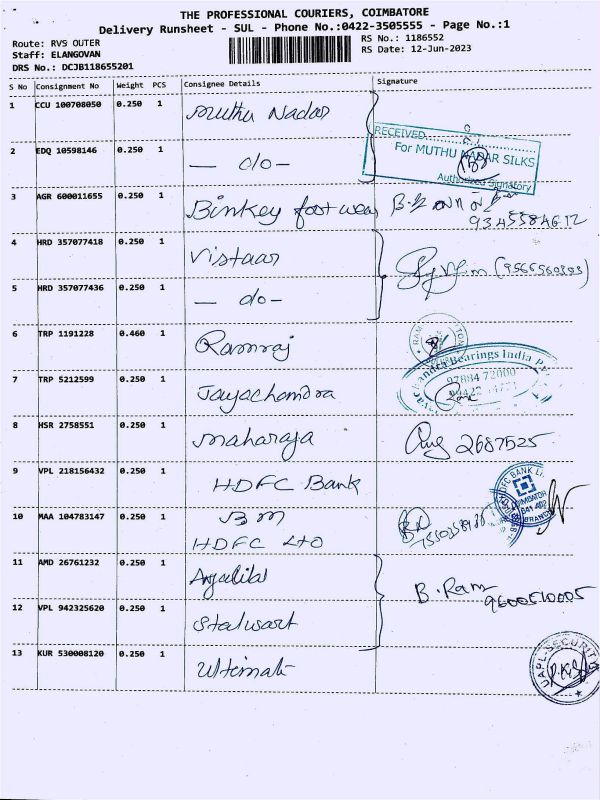 THE PROFESSIONAL COURIERS, COIMBATORE
Delivery Runsheet - SUL - Phone No.:0422-3505555 - Page No.:1
Route: RVS OUTER
RS No.: 1186552
Staff: ELANGOVAN
RS Date: 12-Jun-2023
DRS No.: DCJB118655201
S No Consignment No Weight PCS Consignee Details Signature
1 CCU 100708050 0.250 1 Muthu Nadar
RECEIVED
For MUTHU NADAR SILKS
Authorized Signatory
2 EDQ 10598146 0.250 1 — do —
3 AGR 600011655 0.250 1 Binkey foot wear
4 HRD 357077418 0.250 1 Vistaar
5 HRD 357077436 0.250 1 — do —
6 TRP 1191228 0.460 1 Ramraj
7 TRP 5212599 0.250 1 Jayachandra
Bearings India
97884 72000
8 HSR 2758551 0.250 1 Maharaja 2687525
9 VPL 218156432 0.250 1 HDFC Bank
HDFC BANK
BRANCH
10 MAA 104783147 0.250 1 BM
HDFC LTD
11 AMD 26761232 0.250 1
B. Ram
9600510005
12 VPL 942325620 0.250 1 Stalwart
13 KUR 530008120 0.250 1 Ultimate
UAPL-SECURITY